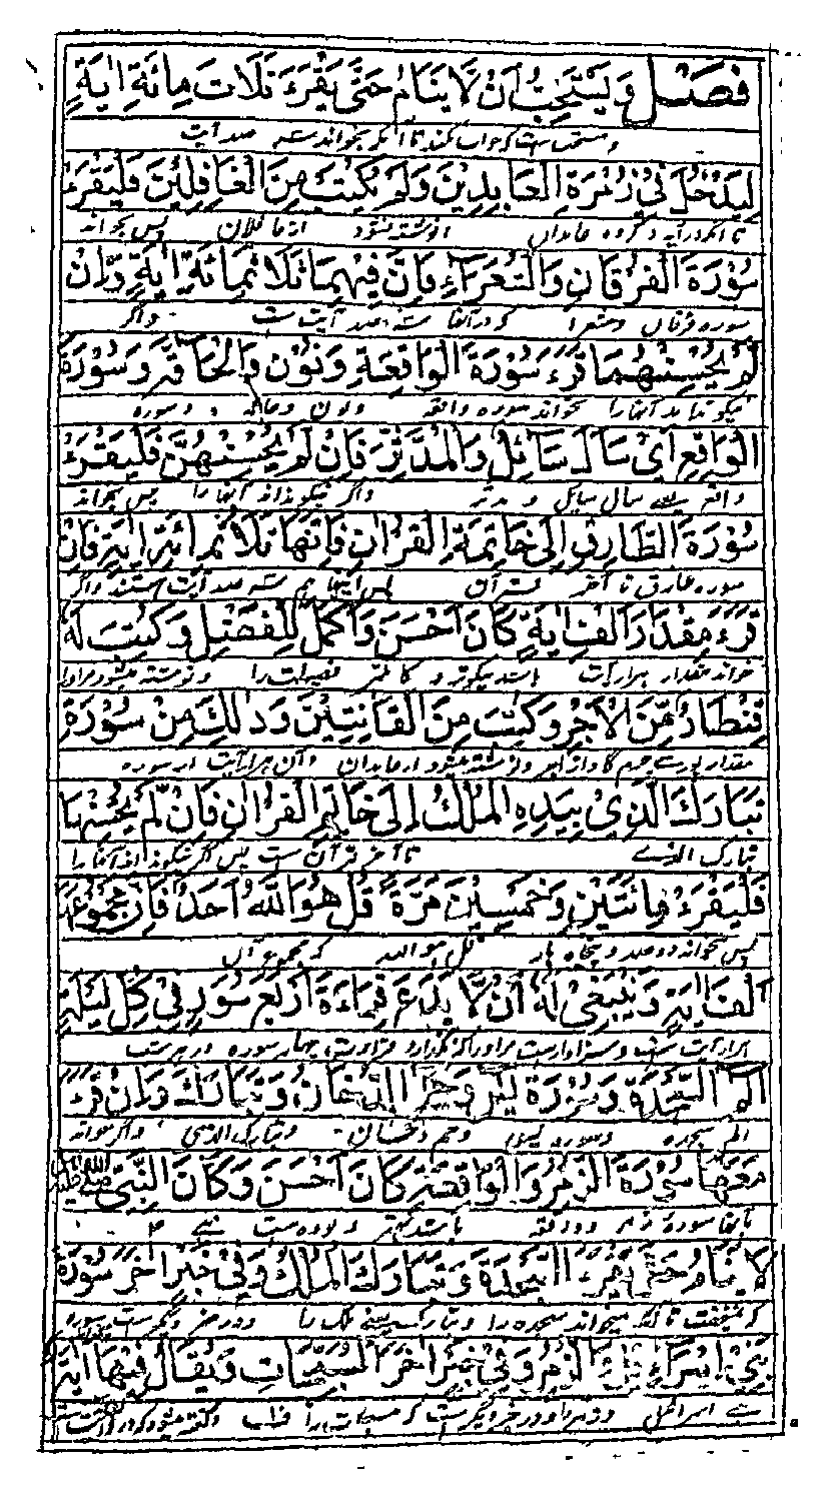 فَصْلٌ وَيَسْتَحِبُّ اَنْ لَّا يَنَامُ حَتّٰى يَقْرَءَ ثَلَاثَ مِائَةِ اٰيَةٍ
و مستحب ست که خواب نکند تا آنکه بخواند سه صد آیت
لِيَدْخُلَ فِيْ زُمْرَةِ الْعَابِدِيْنَ وَلَمْ يُكْتَبْ مِنَ الْغَافِلِيْنَ فَلْيَقْرَءْ
تا آنکه درآید در گروه عابدان نوشته نشود از غافلان پس بخواند
سُوْرَةَ الْفُرْقَانِ وَالشُّعَرَاءِ فَاِنَّ فِيْهِمَا ثَلَاثَمِائَةِ اٰيَةٍ وَّاِنْ
سوره فرقان و شعرا که در آنها سه صد آیت ست و اگر
لَمْ يُحْسِنْهُمَا قَرَءَ سُوْرَةَ الْوَاقِعَةِ وَنُوْن وَالْحَاقَّةِ وَسُوْرَةَ
نیکو نداند آنها را بخواند سوره واقعه و نون و حاقه و سوره
الْوَاقِعِ اَىْ سَاَلَ سَائِلٌ وَالْمُدَّثِّرَ فَاِنْ لَّمْ يُحْسِنْهُنَّ فَلْيَقْرَءْ
واقع یعنی سال سایل و مدثر و اگر نیکو نداند آنها را پس بخواند
سُوْرَةَ الطَّارِقِ اِلٰى خَاتِمَةِ الْقُرْاٰنِ فَاِنَّهَا ثَلَاثُمِائَةِ اٰيَةٍ فَاِنْ
سوره طارق تا آخر قرآن پس اینها هم سه صد آیت هستند و اگر
قَرَءَ مِقْدَارَ اَلْفِ اٰيَةٍ كَانَ اَحْسَنَ وَاَكْمَلَ لِلْفَضْلِ وَكُتِبَ لَهٗ
خواند مقدار هزار آیت باشد نیکوتر و کاملتر فضیلت را و نوشته میشود مر او را
قِنْطَارٌ مِّنَ الْاَجْرِ وَكُتِبَ مِنَ الْقَانِتِيْنَ وَذٰلِكَ مِنْ سُوْرَةِ
مقدار پوست گاو از اجر و نوشته میشود از عابدان و آن هزار آیت از سوره
تَبَارَكَ الَّذِيْ بِيَدِهِ الْمُلْكُ اِلٰى خَاتِمِ الْقُرْاٰنِ فَاِنْ لَّمْ يُحْسِنْهَا
تبارک الذی تا آخر قرآن ست پس اگر نیکو نداند آنها را
فَلْيَقْرَءْ مِائَتَيْنِ وَخَمْسِيْنَ مَرَّةً قُلْ هُوَ اللّٰهُ اَحَدٌ فَاِنَّ مَجْمُوْعَهَا
پس بخواند دو صد و پنجاه بار قل هو الله که مجموع آن
اَلْفُ اٰيَةٍ وَيَنْبَغِيْ لَهٗ اَنْ لَّا يَدَعَ قِرَاءَةَ اَرْبَعِ سُوَرٍ فِيْ كُلِّ لَيْلَةٍ
هزار آیت ست و سزاوارست مر او را که نگذارد قراءت چهار سوره در هر شب
الٓمّ السَّجْدَةِ وَسُوْرَةَ يٰسٓ وَحٰمٓ الدُّخَانِ وَتَبَارَكَ وَاِنْ قَرَءَ
الم سجده و سوره یس و حم دخان و تبارک الذی و اگر خواند
مَعَهَا سُوْرَةَ الزُّمَرِ وَالْوَاقِعَةِ كَانَ اَحْسَنَ وَكَانَ النَّبِيُّ ﷺ
با آنها سوره زمر و واقعه باشد بهتر و بوده ست نبی
لَا يَنَامُ حَتّٰى يَقْرَءَ السَّجْدَةَ وَتَبَارَكَ الْمُلْكُ وَفِيْ خَبَرٍ اٰخَرَ سُوْرَةَ
که نمیخفت تا آنکه میخواند سجده را و تبارک یعنی ملک را و در خبر دیگرست سوره
بَنِيْ اِسْرَاءِيْلَ وَالزُّمَرَ وَفِيْ خَبَرٍ اٰخَرَ الْمُسَبِّحَاتِ وَيُقَالُ فِيْهَا اٰيَةٌ
بنی اسرائیل و زمر و در خبر دیگرست که مسبحات را و گفته میشود که در آن آیتست